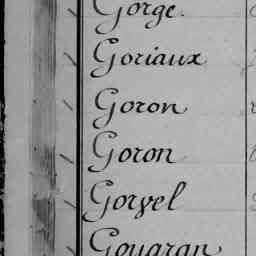 Gorge.
Goriaux
Goron
Goron
Gorvel
Gouaran